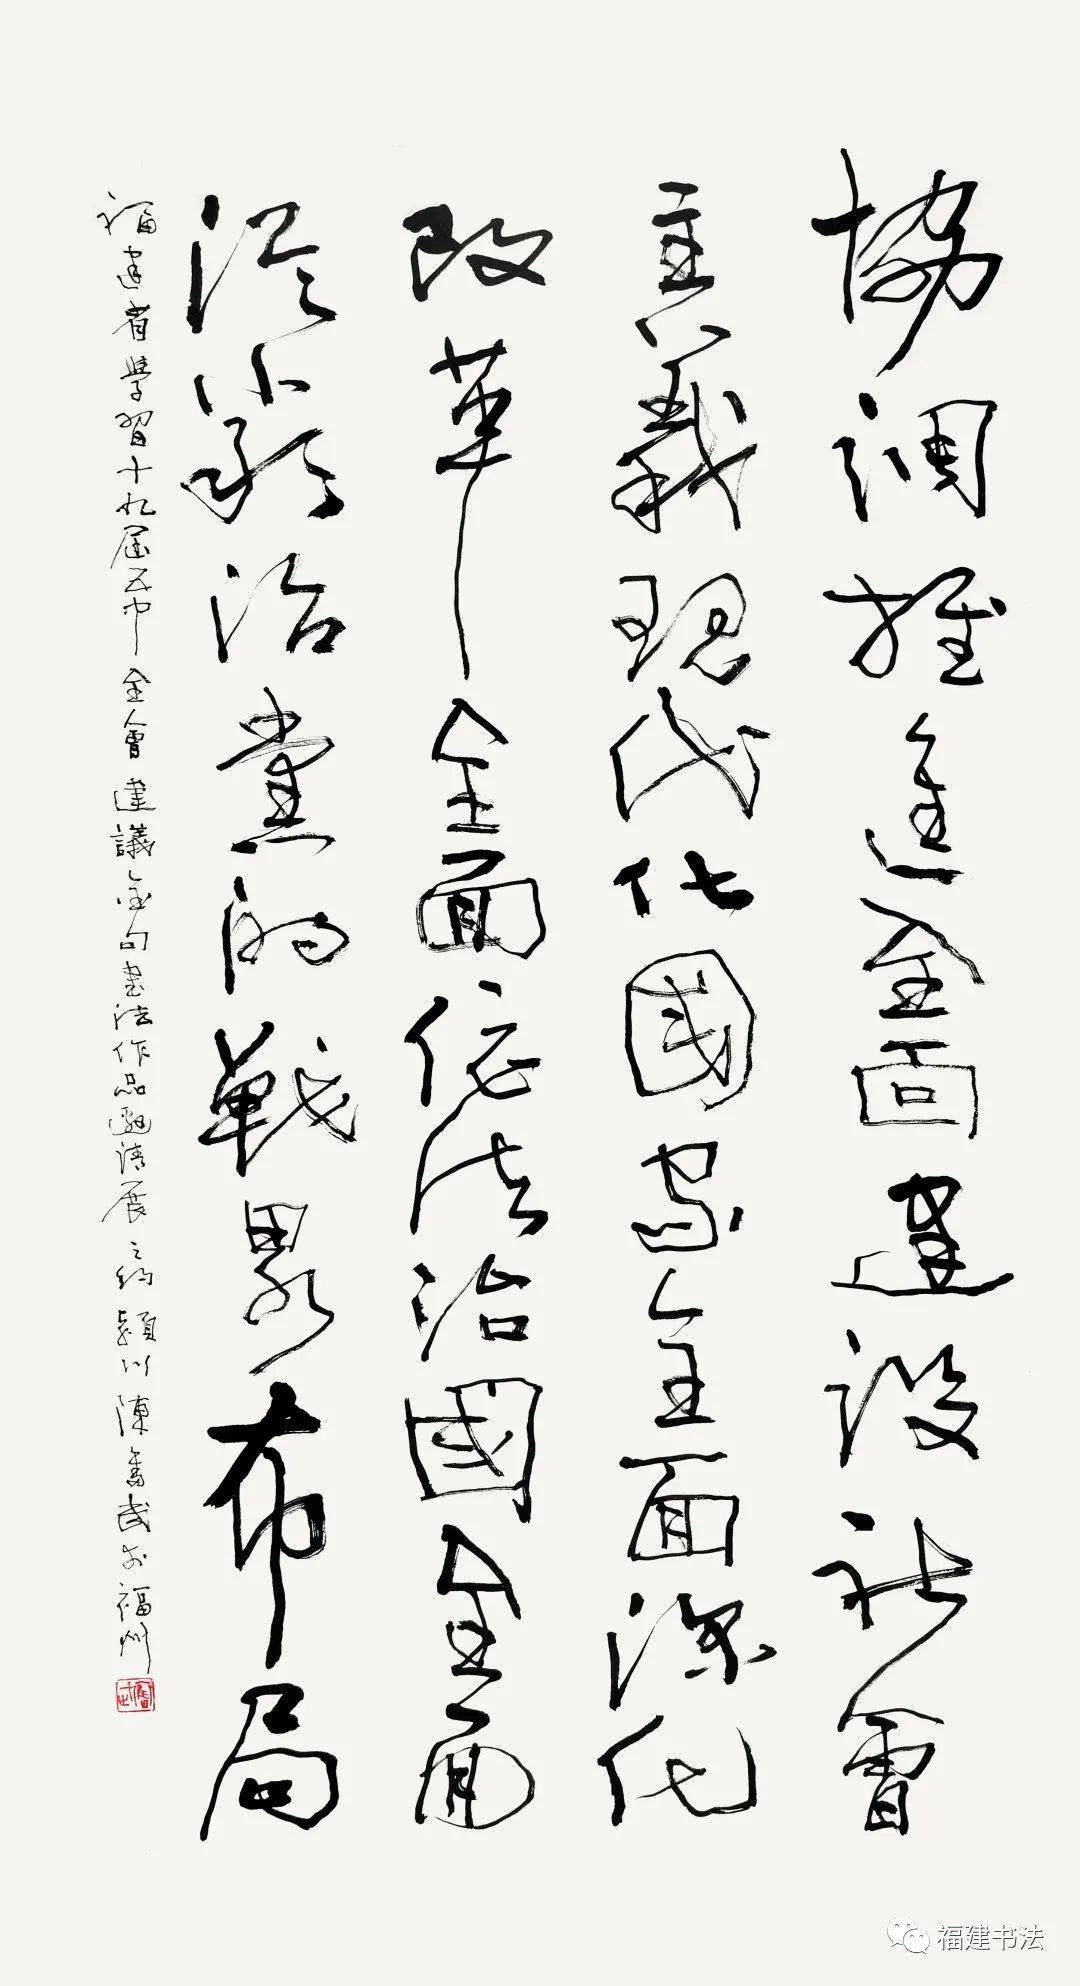 協調推進全面建設社會
主義現代化國家全面深化
改革全面依法治國全面
從嚴治黨的戰略布局
福建省學習十九屆五中全會建議金句書法作品邀請展之約潁川陳奮武於福州
奮武
福建书法